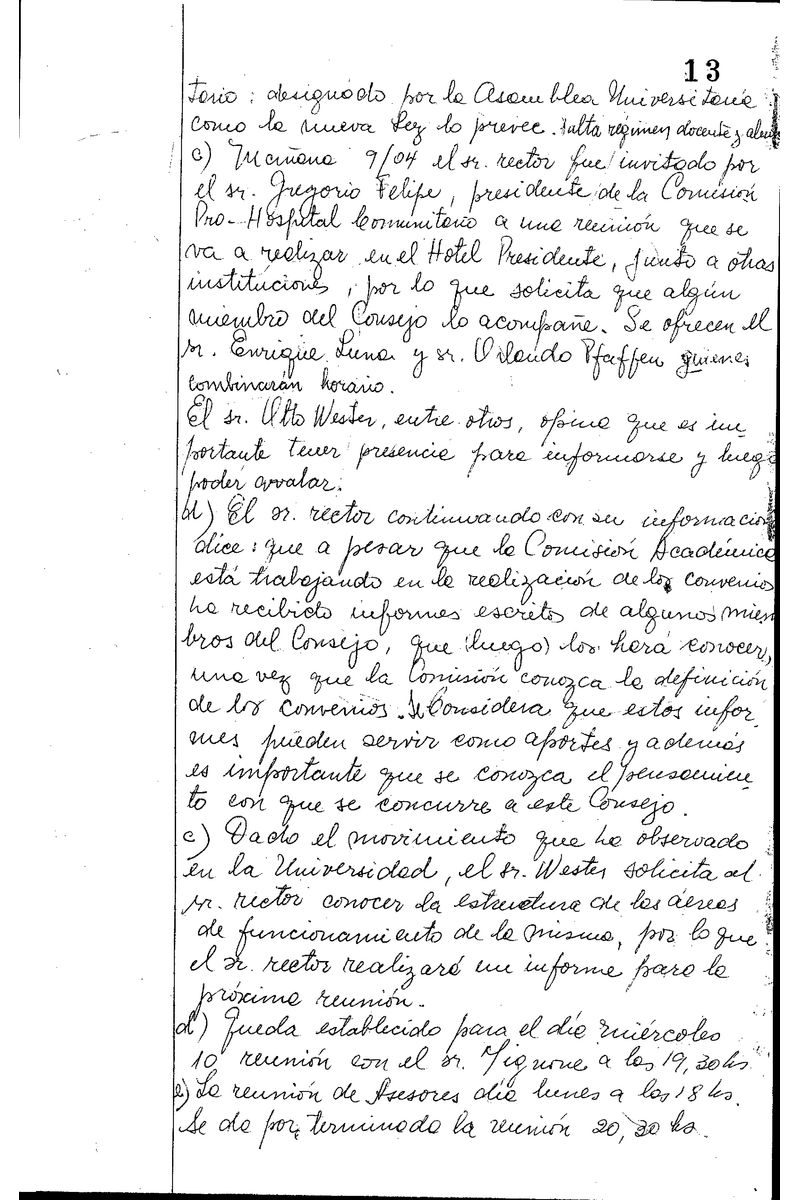 13
torio: designado por la Asamblea Universitaria
como la nueva Ley lo prevee. Falta régimen docente y
c) Mañana 9/04 el sr. rector fue invitado por
el sr. Gregorio Felipe, presidente de la Comisión
Pro-Hospital Comunitario a una reunión que se
va a realizar en el Hotel Presidente, junto a otras
instituciones, por lo que solicita que algún
miembro del Consejo lo acompañe. Se ofrecen el
sr. Enrique Luna y sr. Orlando Pfaffen quienes
combinarán horario.
El sr. Otto Wester, entre otros, opina que es im-
portante tener presencia para informarse y luego
poder avalar.
d) El sr. rector continuando con su información
dice: que a pesar que la Comisión Académica
está trabajando en la realización de los convenios
ha recibido informes escritos de algunos miem
bros del Consejo, que (luego) los hará conocer,
una vez que la Comisión conozca la definición
de los convenios. Se Considera que estos infor-
mes pueden servir como aportes y además
es importante que se conozca el pensamien-
to con que se concurre a este Consejo.
c) Dado el movimiento que ha observado
en la Universidad, el sr. Wester solicita al
sr. rector conocer la estructura de las áreas
de funcionamiento de la misma, por lo que
el sr. rector realizará un informe para la
próxima reunión.
d) Queda establecido para el día miércoles
10 reunión con el sr. Mignone a las 19,30 hs
e) La reunión de Asesores día lunes a las 18 hs.
Se da por terminada la reunión 20,30 hs.